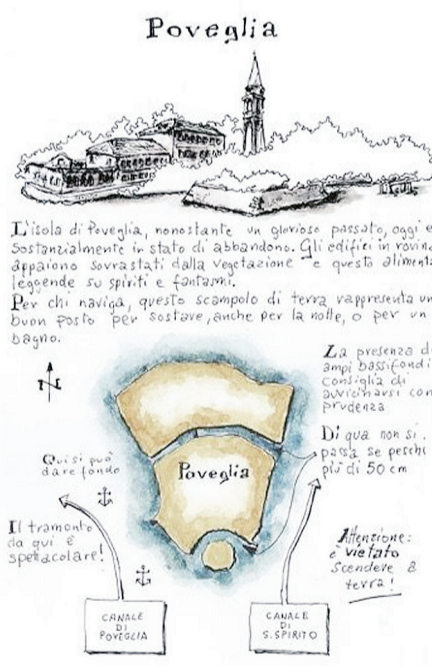 Poveglia
L'isola di Poveglia, nonostante un glorioso passato, oggi e
sostanzialmente in stato di abbandono. Gli edifici in rovin
appaiono sovrastati dalla vegetazione e questo aliment
leggende su spiriti e fantasmi.
Per chi naviga, questo scampolo di terra rappresenta un
buon posto per sostare, anche per la notte, o per un
bagno.
La presenza d
ampi bassifondi
consiglia di
avvicinarsi con
prudenza
N
Di qua non si
passa se peschi
più di 50 cm
Qui si può
dare fondo
Poveglia
Il tramonto
da qui è
spettacolare!
Attenzione:
è vietato
scendere a
terra!
CANALE
DI
POVEGLIA
CANALE
DI
S.SPIRITO